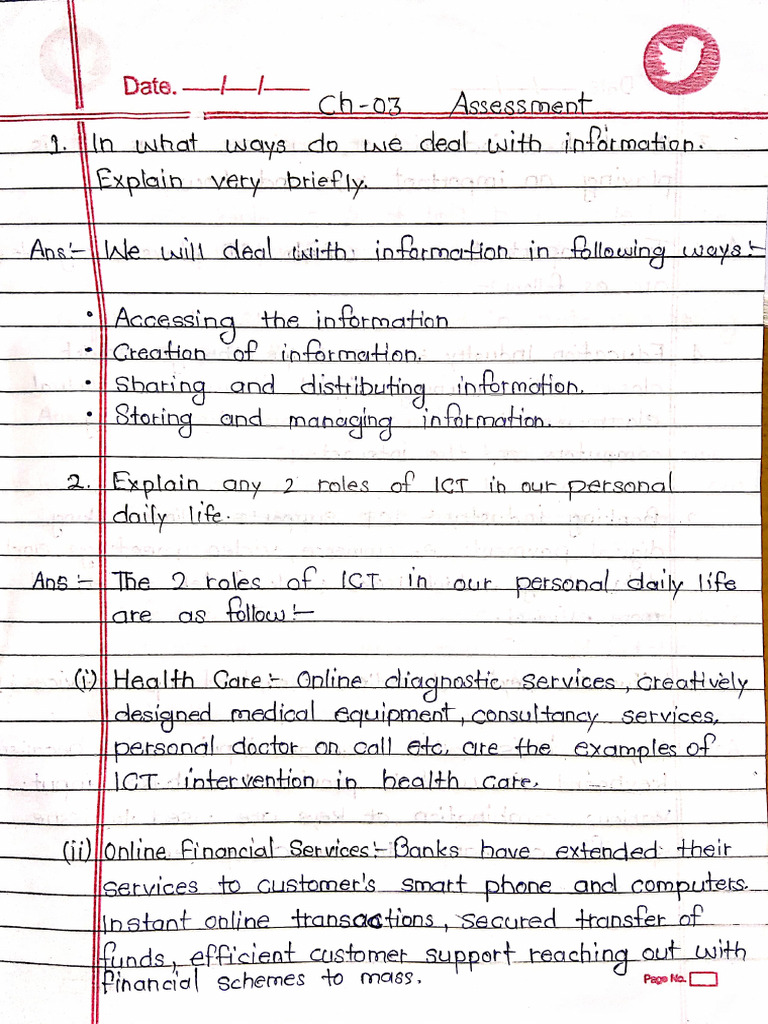 Date. __/__/__
Ch-03 Assessment
1. In what ways do we deal with information.
Explain very briefly.
Ans:- We will deal with information in following ways:-
• Accessing the information
• Creation of information.
• Sharing and distributing information.
• Storing and managing information.
2. Explain any 2 roles of ICT in our personal
daily life.
Ans:- The 2 roles of ICT in our personal daily life
are as follow:-
(i) Health Care:- Online diagnostic services, creatively
designed medical equipment, consultancy services,
personal doctor on call etc. are the examples of
ICT intervention in health care.
(ii) Online Financial Services:- Banks have extended their
services to customer's smart phone and computers.
Instant online transactions, secured transfer of
funds, efficient customer support reaching out with
financial schemes to mass.
Page No.